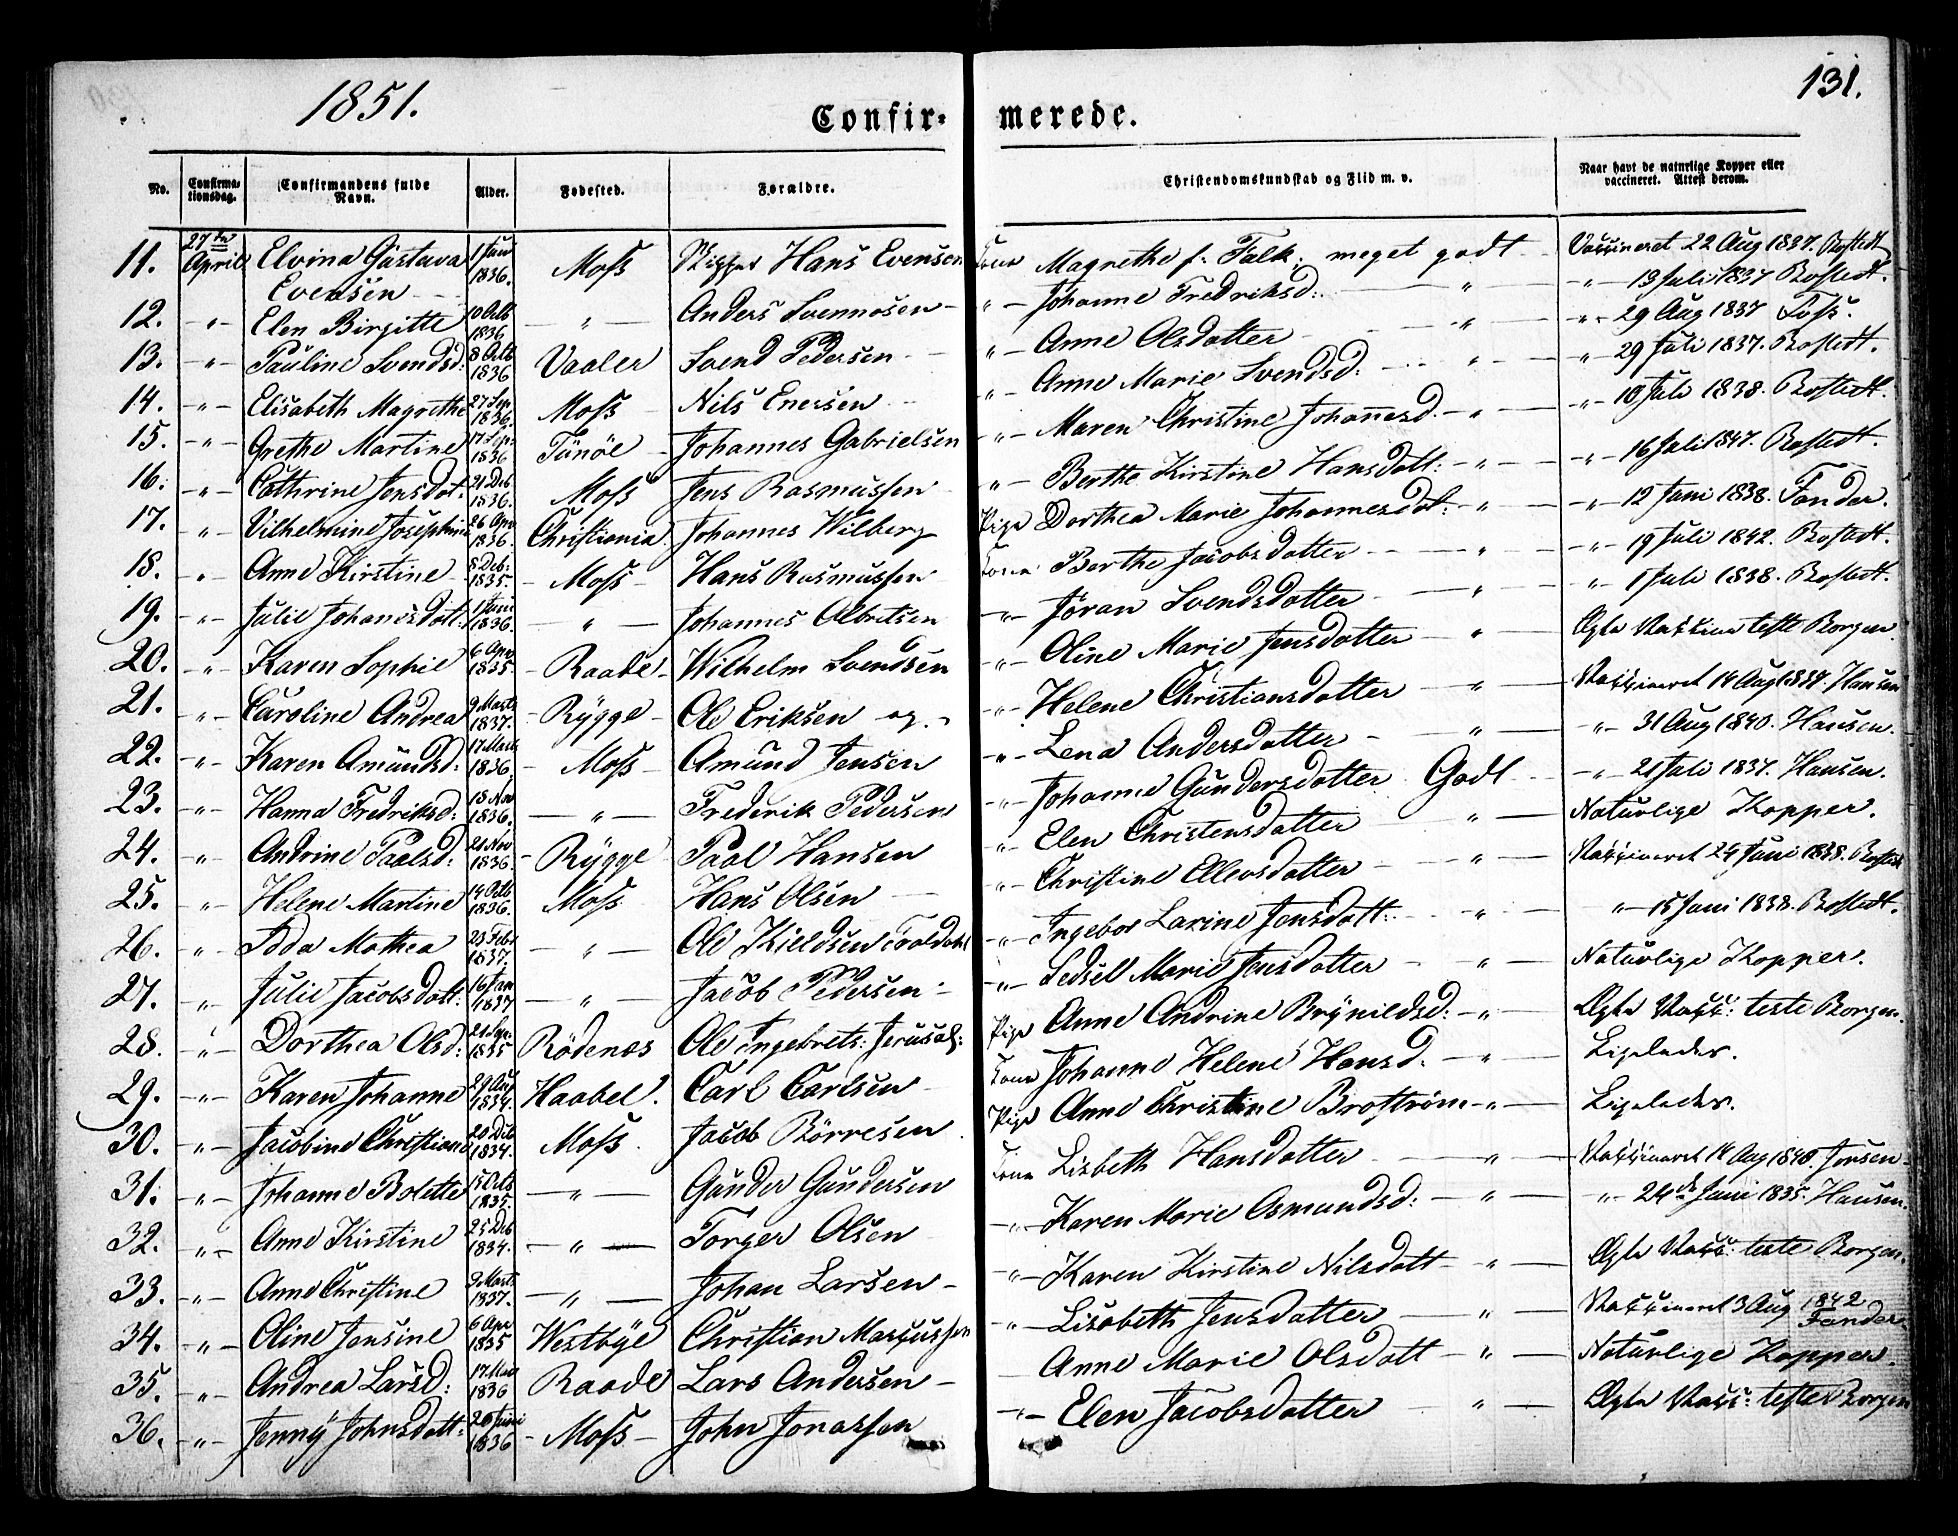 1851.
131.
Confir= merede.
No. Confirma-tionsdag. Confirmandens fulde Navn. Alder. Fødested. Forældre. Christendomskundskab og Flid m. v. Naar havt de naturlige Kopper eller vaccineret. Attest derom.
11. 27de April Elvina Gustava Evensen 1 Juni 1836. Moss Hans Evensen Kone Magrethe f. Falk. meget godt Vaccineret 22 Aug 1837. Bosted
12. -"- Elen Birgitte 10 Octb 1836 -"- Anders Svennosen "- Johanne Fredriksd: " -"- 19 Juli 1837 Bostedt.
13. -"- Pauline Svendsd: 8 Octb 1836 Vaaler Svend Pedersen "- Anne Olsdatter -"- -"- 29 Aug 1837
14. -"- Elisabeth Magrethe 27 Sep 1836. Moss Nils Enersen "- Anne Marie Svendsd: " " 29 Juli 1837. Bostedt.
15. -"- Grethe Martine 17 Sep 1836 Johannes Gabrielsen -"- Maren Christine Johannesd. -"- -"- 10 Juli 1838. Bostedt.
16. -"- Cathrine Jensdot: 21 Deb 1836. Moss Jens Rasmussen -"- Berthe Kirstine Hansdatt: -"- -"- 16 Juli 1847. Bostedt.
17. " Vilhelmine Josephine 26 Apr 1836. Christiania Johannes Wilberg Pige Dorthea Marie Johannesdot: -"- -"- 12 Juni 1838. Fander.
18. " Anne Kirstine 8 Deb: 1835. Moss Hans Rasmussen Kone Berthe Jacobsdatter " -"- 19 Juli 1842. Bostedt.
19. -"- Julie Johanesdatt: 1 Juni 1836. -"- Johannes Albretsen -"- Jøran Svendsdatter " -"- 1 Juli 1838. Bostedt.
20. " Karen Sophie 6 Apr 1835. Raade Wilhelm Svendsen "- Oline Marie Jensdatter -"- Ægte Vaccine teste Borgen
21. -"- Caroline Andrea 9 Marts 1837. Rygge Ole Eriksen -"- Helene Christiansdatter " Vaccineret 14 Aug 1837. Hansen
22. -"- Karen Amundsd: 17 Marts 1836. Moss Amund Jensen -"- Lena Andersdatter " -"- 31 Aug 1840. Hansen.
23. -"- Hanna Fredriksd: 18 Nov 1836. -"- Frederik Pedersen -"- Johanne Gundersdatter Godt -"- 21 Juli 1837. Hansen.
24. " Andrine Paalsd: 21 Nov 1836. Rygge Paal Hansen "- Elen Christensdatter " Naturlige Kopper.
25. " Helene Martine 14 Octb 1836. Moss Hans Olsen "- Christine Ellevsdatter -"- Vaccineret 24 Juni 1838. Bostedt
26. -"- Mathea 23 Febr 1837. -"- Ole Kieldsen -"- Ingebor Larine Jensdatt: " "- 15 Juni 1838. Bostedt.
27. " Julie Jacobsdatt: 16 Jan 1837 -"- Jacob Pedersen -"- Sedsel Marie Jensdatter " Naturlige Kopper.
28. -"- Dorthea Olsd: 21 Sep. 1835 Rödenæs Ole Ingebrets: Jerusal: Pige Anne Andrine Brynildsd: -"- Ægte Vacc: teste Borgen.
29. -"- Karen Johanne 29 Aug 1834. Haabel. Carl Carlsen Kone Johanne Helene Hansd. " Ligeledes.
30. -"- Jacobine Christiane 20 Deb 1834. Moss Jacob Börresen Pige Anne Christine Broström -"- Ligeledes.
31. -"- Johanne Bolette 15 Octb 1835. -"- Gunder Gundersen Kone Lisbeth Hansdatter -"- Vaccineret 14 Aug 1840. Jensen
32. -"- Anne Kirstine 25 Deb 1834. -"- Torger Olsen -"- Karen Marie Asmundsd: -"- -"- 24de Juni 1835. Hansen.
33. -"- Anne Christine 9 Marts 1837. -"- Johan Larsen -"- Karen Kirstine Nilsdatt -"- Ægte Vacc: teste Borgen.
34. -"- Oline Jensine 6 Apr 1835 Westbye Christian Marcussen -"- Lisabeth Jensdatter " Vaccineret 3 Aug 1842 Fander
35. -"- Andrea Larsd: 17 Mai 1836 Raade Lars Andersen Anne Marie Olsdatt -"- Naturlige Kopper.
36. -"- Jenny Johnsdatt: 26 Juni 1836 Moss John Jonassen -"- Elen Jacobsdatter " Ægte Vacc: teste Borgen